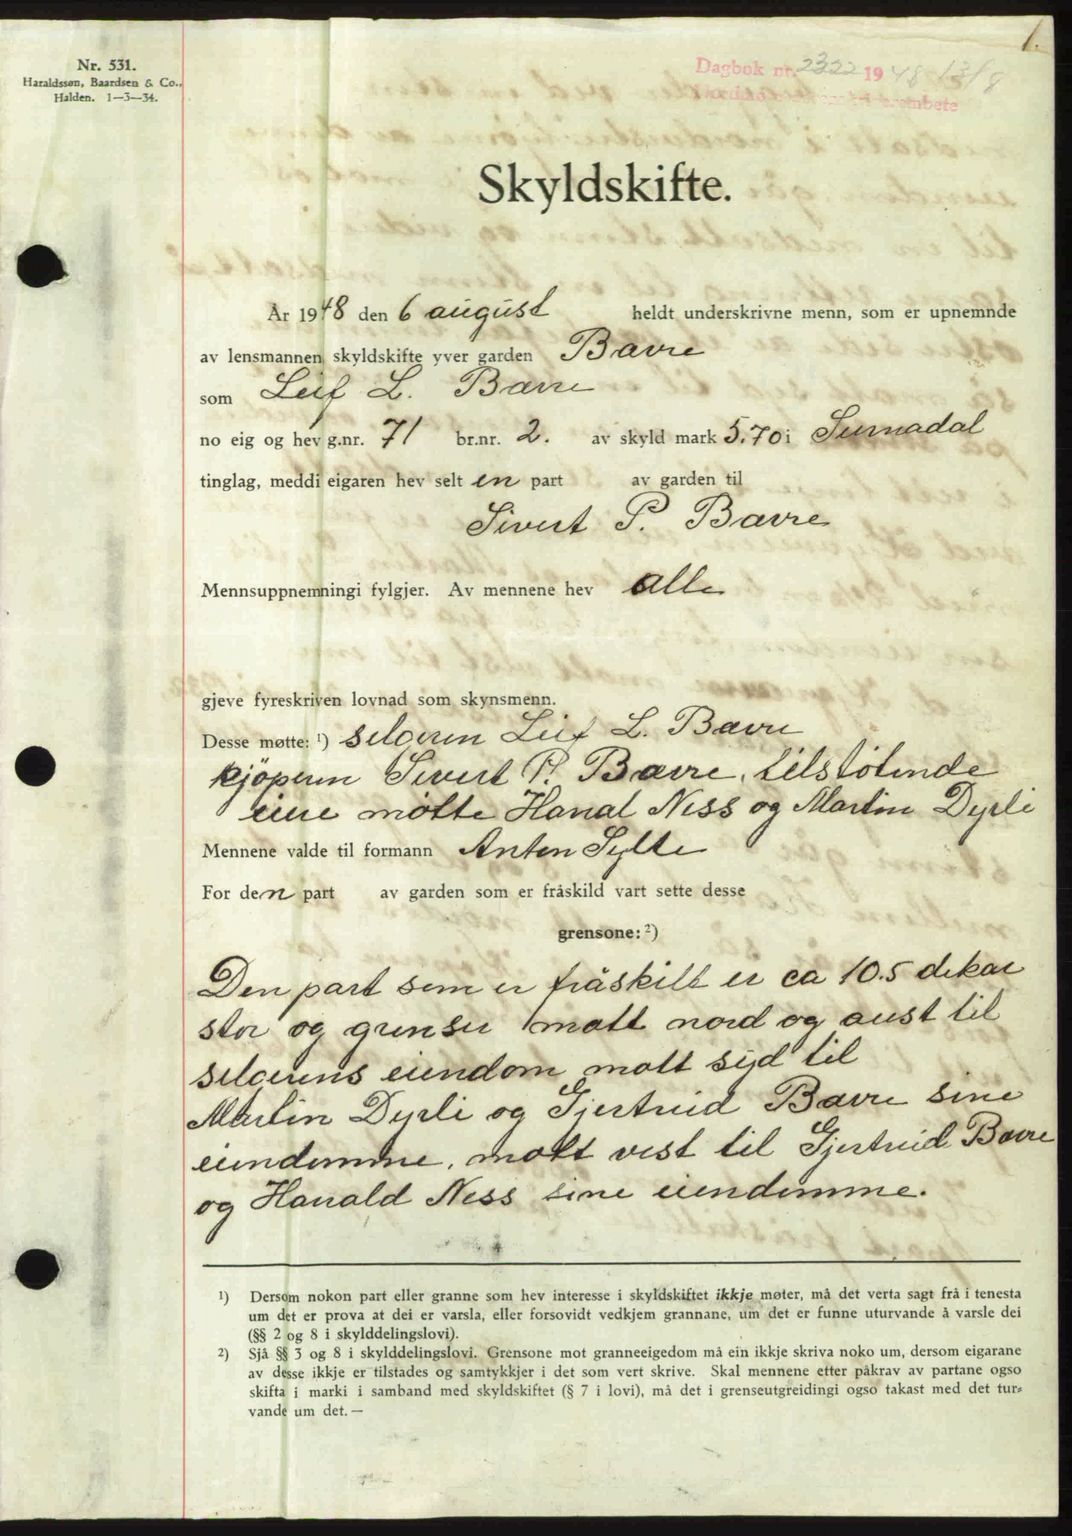 1.
Nr. 531.
Haraldssøn, Baardsen & Co.,
Halden. 1—3—34.
Dagbok nr. 2322 1948 13/8
Skyldskifte.
År 1948 den 6 august heldt underskrivne menn, som er upnemnde
av lensmannen skyldskifte yver garden Bævre
som Leif L. Bævre
no eig og hev g.nr. 71 br.nr. 2. av skyld mark 5.70 i Surnadal
tinglag, meddi eigaren hev selt en part av garden til
Sivert P. Bævre
Mennsuppnemningi fylgjer. Av mennene hev alle
gjeve fyreskriven lovnad som skynsmenn.
Desse møtte: ¹) selgeren Leif L. Bævre
kjöperen Sivert P. Bævre, tilstötende
eiere møtte Harald Ness og Martin Dyrli
Mennene valde til formann Anton Sylte
For den part av garden som er fråskild vart sette desse
grensone: ²)
Den part som er fråskilt er ca 10.5 dekar
stor og grenser mott nord og aust til
selgerens eiendom mott syd til
Martin Dyrli og Gjertrud Bævre sine
eiendomme, mott vest til Gjertrud Bævre
og Harald Ness sine eiendomme.
¹) Dersom nokon part eller granne som hev interesse i skyldskiftet ikkje møter, må det verta sagt frå i tenesta
um det er prova at dei er varsla, eller forsovidt vedkjem grannane, um det er funne uturvande å varsle dei
(§§ 2 og 8 i skylddelingslovi).
²) Sjå §§ 3 og 8 i skylddelingslovi. Grensone mot granneeigedom må ein ikkje skriva noko um, dersom eigarane
av desse ikkje er tilstades og samtykkjer i det som vert skrive. Skal mennene etter påkrav av partane ogso
skifta i marki i samband med skyldskiftet (§ 7 i lovi), må det i grenseutgreidingi ogso takast med det tur-
vande um det. —